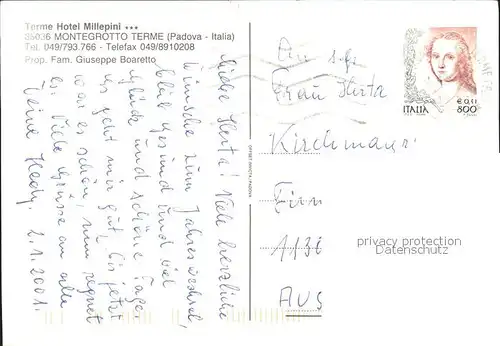 Terme Hotel Millepini ★★★
35036 MONTEGROTTO TERME (Padova - Italia)
Tel. 049/793.766 - Telefax 049/8910208
Prop. Fam. Giuseppe Boaretto
Liebe Herta! Viele herzliche
Wünsche zum Jahreswechsel,
bleib gesund und viel
Glück und schöne Tage.
Es geht mir gut, bis jetzt
war es schön, nun regnet
es. Viele Grüsse an alle
Deine Hedy. 2.1.2001.
Frau Herta
Kirchmayr
AUS
ITALIA
800
privacy protection
Datenschutz